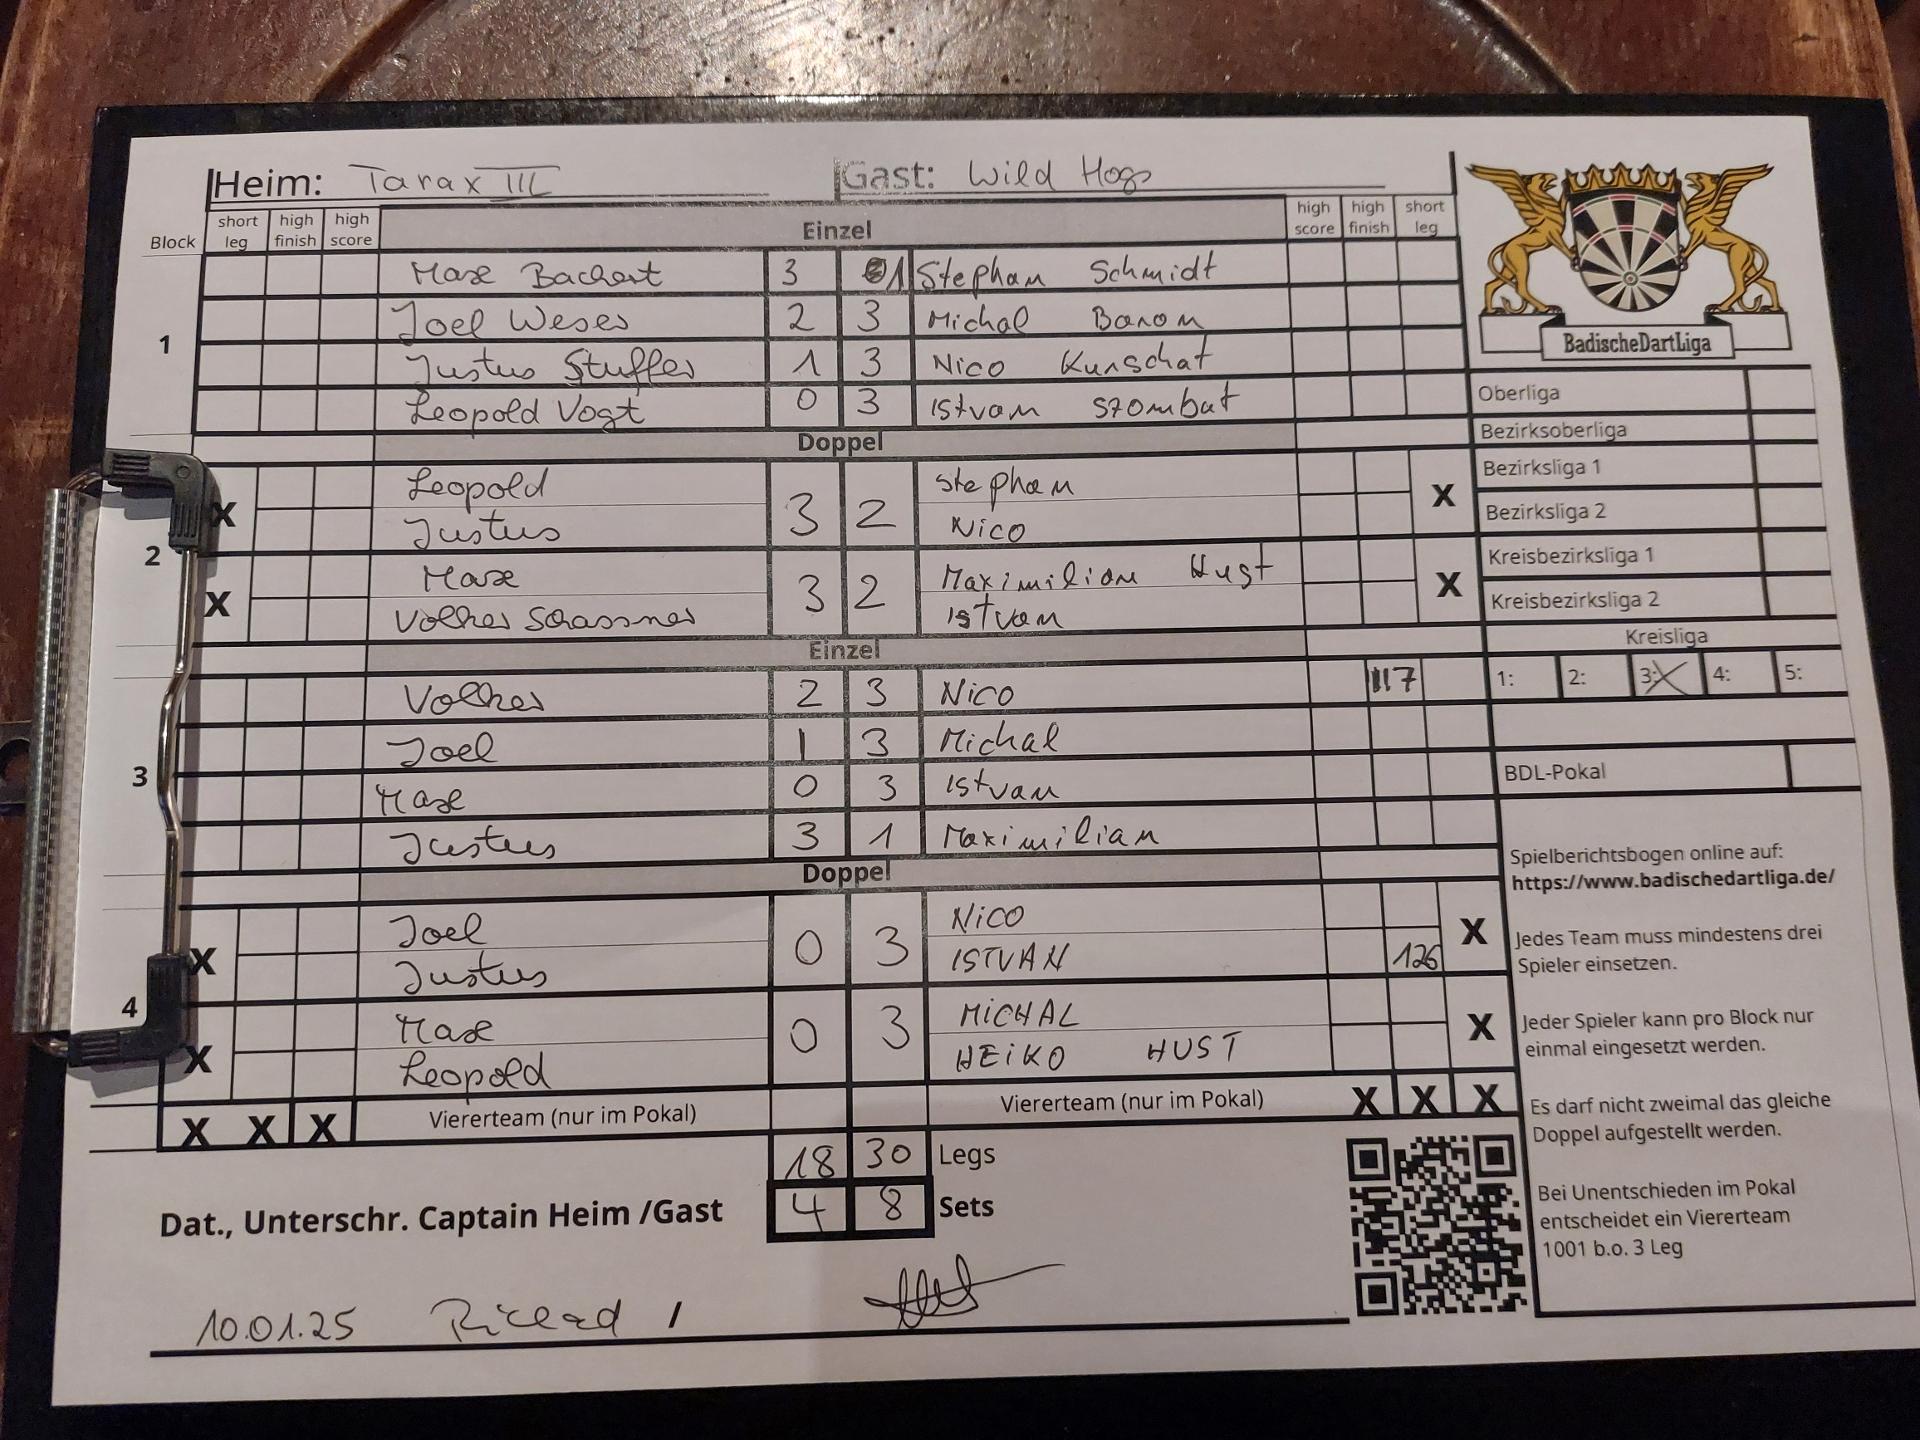 Heim: Tarax III Gast: Wild Hogs
Block short leg high finish high score Einzel high score high finish short leg
1
Maxe Bachert 3 1 Stephan Schmidt
Joel Weser 2 3 Michal Baron
Justus Stuffer 1 3 Nico Kunschat
Leopold Vogt 0 3 Istvan Szombat
Doppel
2
X Leopold 3 2 Stephan X
Justus Nico
X Maxe 3 2 Maximilian Hust X
Volker Istvan
Einzel
3
Volker 2 3 Nico 117
Joel 1 3 Michal
Maxe 0 3 Istvan
Justus 3 1 Maximilian
Doppel
4
X Joel 0 3 Nico X
Justus ISTVAN 126
X Maxe 0 3 MICHAL X
Leopold HEIKO HUST
X X X Vierерteam (nur im Pokal) Viererteam (nur im Pokal) X X X
18 30 Legs
4 8 Sets
Dat., Unterschr. Captain Heim /Gast
10.01.25 /
BadischeDartLiga
Oberliga
Bezirksoberliga
Bezirksliga 1
Bezirksliga 2
Kreisbezirksliga 1
Kreisbezirksliga 2
Kreisliga
1: 2: 3: X 4: 5:
BDL-Pokal
Spielberichtsbogen online auf:
https://www.badischedartliga.de/
Jedes Team muss mindestens drei
Spieler einsetzen.
Jeder Spieler kann pro Block nur
einmal eingesetzt werden.
Es darf nicht zweimal das gleiche
Doppel aufgestellt werden.
Bei Unentschieden im Pokal
entscheidet ein Viererteam
1001 b.o. 3 Leg